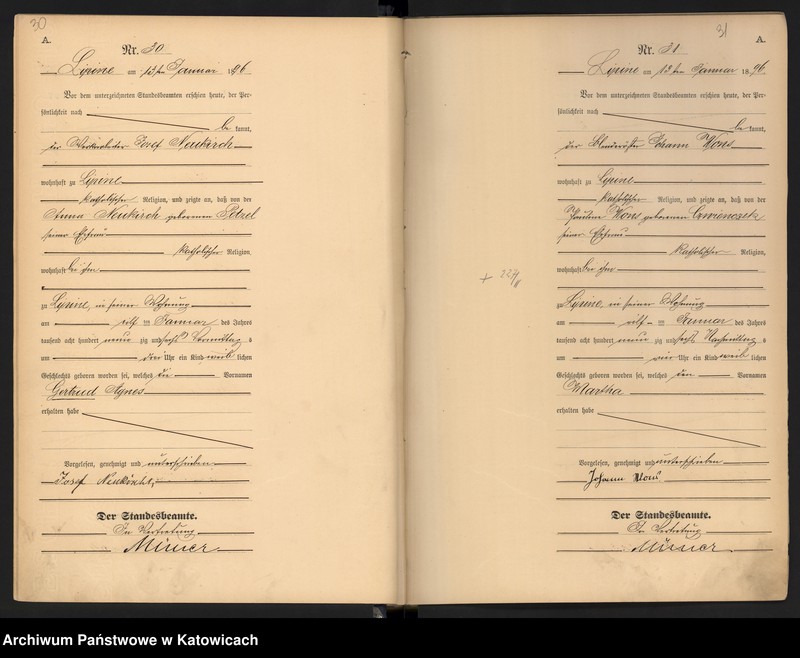 30
A.
Nr. 30
Lipine am 13ten Januar 1896
Vor dem unterzeichneten Standesbeamten erschien heute, der Per-
sönlichkeit nach
be kannt,
der Josef Neukirch
wohnhaft zu Lipine
katholischer Religion, und zeigte an, daß von der
Anna Neukirch geborenen Petzel
seiner Ehefrau
katholischer Religion,
wohnhaft bei ihm
zu Lipine, in seiner Wohnung
am elf ten Januar des Jahres
tausend acht hundert neun zig und sechs Vormittags
um drei Uhr ein Kind weib lichen
Geschlechts geboren worden sei, welches die Vornamen
Gertrud Agnes
erhalten habe
Vorgelesen, genehmigt und unterschrieben
Josef Neukirch
Der Standesbeamte.
In Vertretung
31
A.
Nr. 31
Lipine am 13ten Januar 1896
Vor dem unterzeichneten Standesbeamten erschien heute, der Per-
sönlichkeit nach
be kannt,
der Johann Wons
wohnhaft zu Lipine
katholischer Religion, und zeigte an, daß von der
Wons geborenen
seiner Ehefrau
katholischer Religion,
wohnhaft bei ihm
zu Lipine, in seiner Wohnung
am elf ten Januar des Jahres
tausend acht hundert neun zig und sechs Nachmittags
um vier Uhr ein Kind weib lichen
Geschlechts geboren worden sei, welches den Vornamen
Martha
erhalten habe
Vorgelesen, genehmigt und unterschrieben
Johann Wons
Der Standesbeamte.
In Vertretung
Archiwum Państwowe w Katowicach